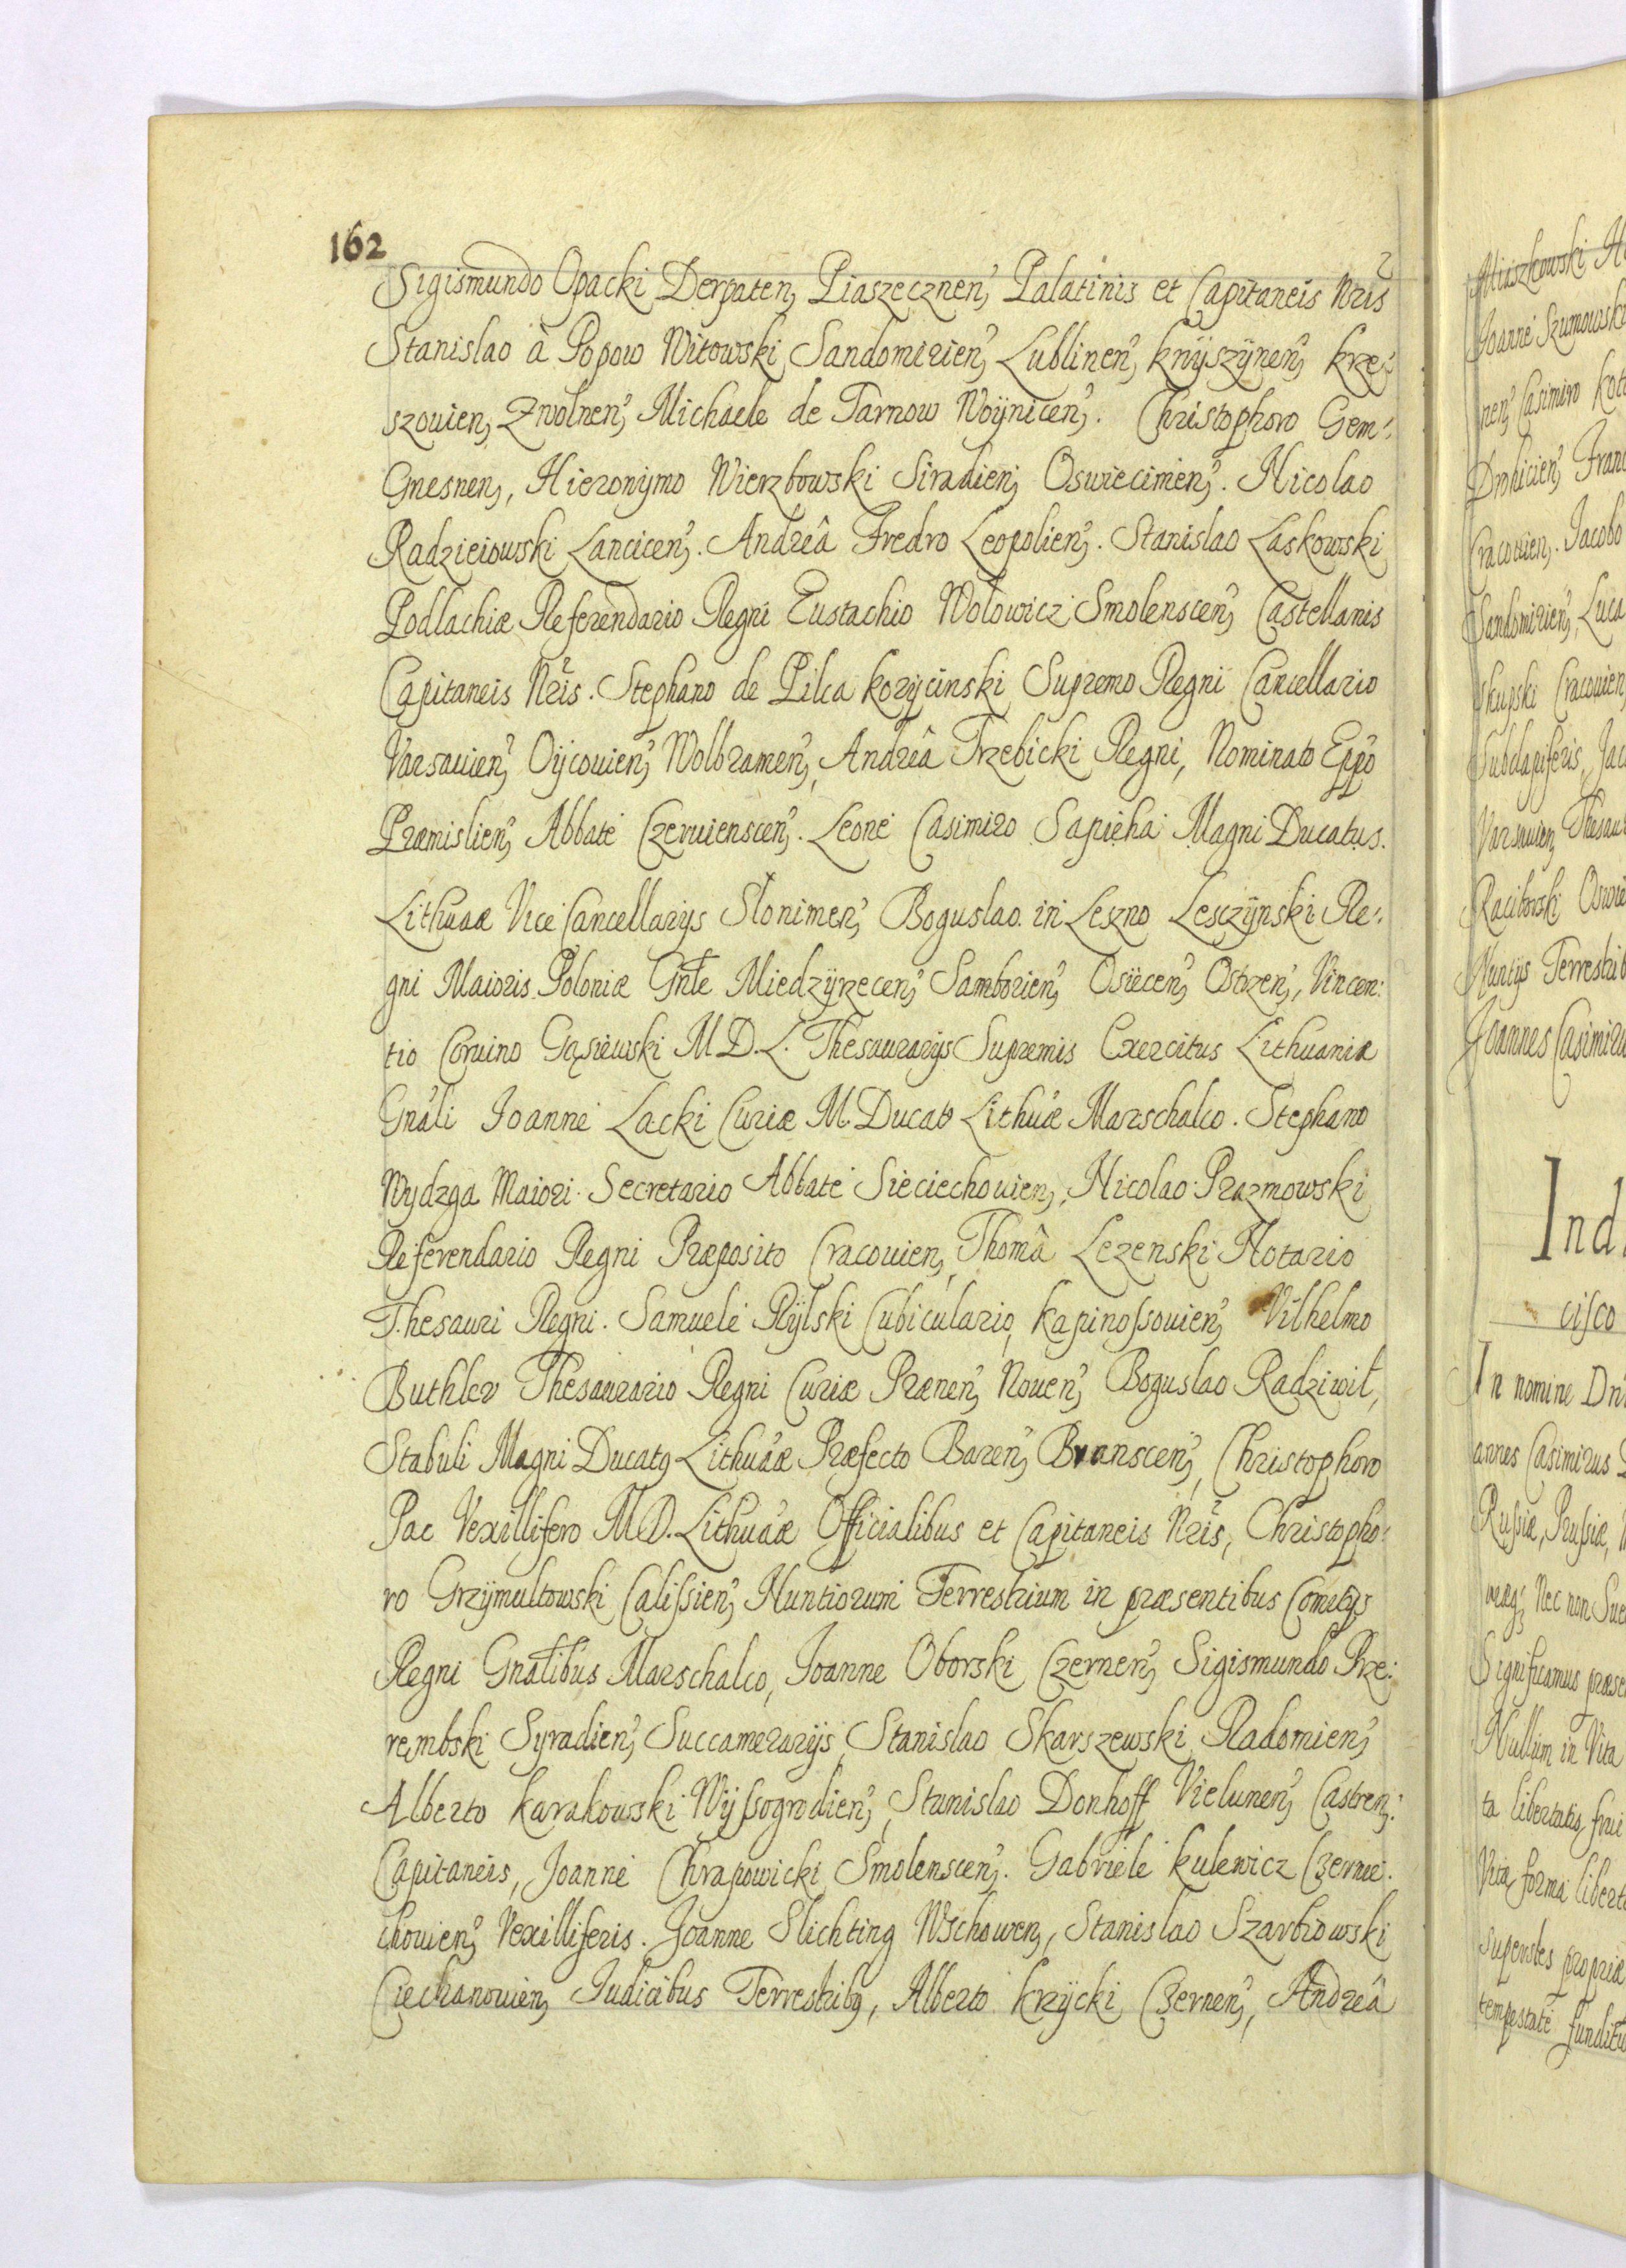 162
Sigismundo Opacki Derpaten, Piaszecznen, Palatinis et Capitaneis Nris
Stanislao à Popow Witowski Sandomirien, Lublinen, knÿszÿnen, krze:
szouien, Zwolnen, Michaele de Tarnow Woÿnicen. Christophoro Gem:
Gnesnen, Hieronÿmo Wierzbowski Siradien, Oswiecimen. Nicolao
Radzieiowski Lancicen. Andreâ Fredro Leopolien. Stanislao Laskowski
Podlachiæ Referendario Regni Eustachio Wolowicz Smolenscen, Castellanis
Capitaneis Nris. Stephano de Pilca korÿcinski Supremo Regni Cancellario
Varsauien, Oÿcouien, Wolbramen, Andreâ Trzebicki Regni, Nominato Eppo
Præmislien, Abbate Czeruienscen. Leone Casimiro Sapieha Magni Ducatus.
Lithuaæ Vice Cancellarÿs Slonimen, Boguslao in Leszno Lesczÿnski Re:
gni Maioris Poloniæ Gnle Miedzÿrzecen, Samborien, Osiecen, Ostrzen, Vincen:
tio Coruino Gąsiewski M D. L. Thesaurarÿs Supremis Exercitus Lithuaniæ
Gnali Joanne Lacki Curiæ M. Ducatus Lithuæ Marschalco. Stephano
Wydzga Maiori Secretario Abbate Sieciechouien, Nicolao Prazmowski
Referendario Regni Præposito Cracouien, Thomâ Lezenski Notario
Thesauri Regni. Samuele Rÿlski Cubiculario, kapinoſsouien, Vilhelmo
Buthler Thesaurario Regni Curiæ Prænen, Nouen, Boguslao Radziwił,
Stabuli Magni Ducatus Lithuaæ Præfecto Baren, Branscen, Christophoro
Pac Vexillifero M D. Lithuaæ Officialibus et Capitaneis Nris, Christopho:
ro Grzÿmultowski Caliſsien, Nuntiorum Terrestrium in præsentibus Comitÿs
Regni Gnalibus Marschalco, Joanne Oborski Czernen, Sigismundo Prze:
rembski Syradien, Succamerarÿs, Stanislao Skarszewski Radomien,
Alberto karakowski Wÿſsogrodien, Stanislao Donhoff Vielunen, Castren:
Capitaneis, Joanne Chrapowicki Smolenscen. Gabriele kulewicz Czernie:
chouien, Vexilliferis. Joanne Slichting Wschowen, Stanislao Szarbiowski
Ciechanouien, Judicibus Terrestribus, Alberto krzÿcki Czernen, Andreâ
Miaszkowski
Joanne Szumowski
nen, Casimiro
Drohicien,
Cracouien. Jacobo
Sandomirien, Luca
skupski Cracouien,
Subdapiferis,
Varsauien,
Raciborski
Nuntÿs
Joannes
ciſco
In nomine
annes Casimirus
Ruſsiæ, Pruſsiæ,
nec non
Significamus
Nullum in Vita
ta libertatis frui
Vita forma
superstes propriæ
tempestate